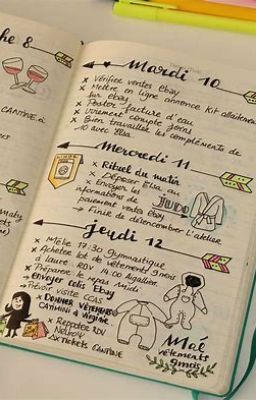 he 8
CANTINE à
Mardi 10
x Vérifier ventes ebay
x Mettre en ligne annonce Kit allaitement
sur ebay
x Poster facture d'eau
x Virement compte joint
x Bien travailler les compléments de
10 avec
Mercredi 11
x Rituel du matin
x Déposer Eva au
JUDO
x Envoyer les
informations de
paiement ventes ebay
→ Finir de désencombrer l'atelier
Jeudi 12
x 17:30 Gymnastique
x Acheter lot de vêtements 9 mois
à Laure. RDV 14:00
x Préparer le repas Midi
x Envoyer colis Ebay
→ Prévoir visite CCAS
x DONNER VÊTEMENTS
x RDV
x Tickets CANTINE
Maé
vêtements
9mois